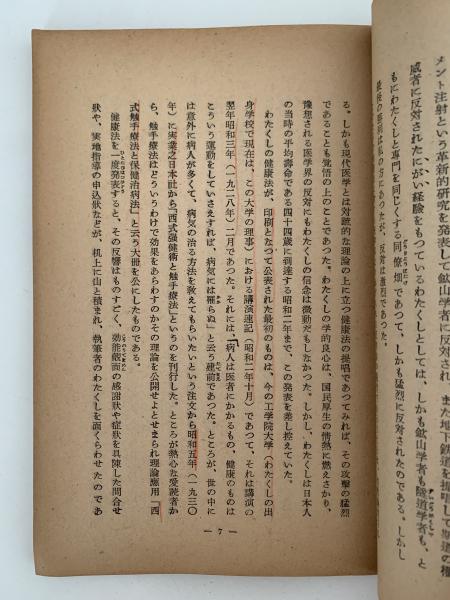 メント注射という革新的研究を発表して鉱山学者に反対され、また地下鉄道を提唱して斯道の権
威者に反対されたにがい経験をもつているわたくしとしては、しかも鉱山学者も、隧道学者も、と
もにわたくしと専門を同じくする同僚畑であつて、しかも猛烈に反対されたのである。しかし
最後の勝利は私の方にあつたが、反対は激烈であつた。
る。しかも現代医学とは対蹠的な理論の上に立つ健康法の提唱であつてみれば、その攻撃の猛烈
であることも覚悟の上のことであつた。わたくしの学的良心は、国民厚生の情熱に燃えさかり、
予想される医学界の反対にもわたくしの信念は微動だもしなかつた。しかし、わたくしは日本人
の当時の平均寿命である四十四歳に到達する昭和二年まで、この発表を差し控えていた。
わたくしの健康法が、印刷となつて公表された最初のものは、今の工学院大学(わたくしの出
身学校で現在は、この大学の理事)における講演速記(昭和二年十月)であつて、それは講演の
翌年昭和三年(一九二八年)二月であつた。それには、「病人は医者にかかるもの、健康のものは
こういう運動をしていさえすれば、病気には罹らぬ」と云う建前であつた。ところが、世の中に
は意外に病人が多くて、病気の治る方法を教えてもらいたいという注文から昭和五年(一九三〇
年)に実業之日本社から「西式強健術と触手療法」というのを刊行した。ところが熱心な愛読者か
ら、触手療法はどういうわけで効果をあらわすのかその理論を公開せよとせまられ理論応用「西
式触手療法と保健治病法」と云う大冊を公にしたものである。
健康法を一度発表すると、その反響はものすごく、効能覿面の感謝状や症状を具陳した問合せ
状や、実地指導の申込状などが、机上に山と積まれ、執筆者のわたくしを面くらわせたのであ
― 7 ―